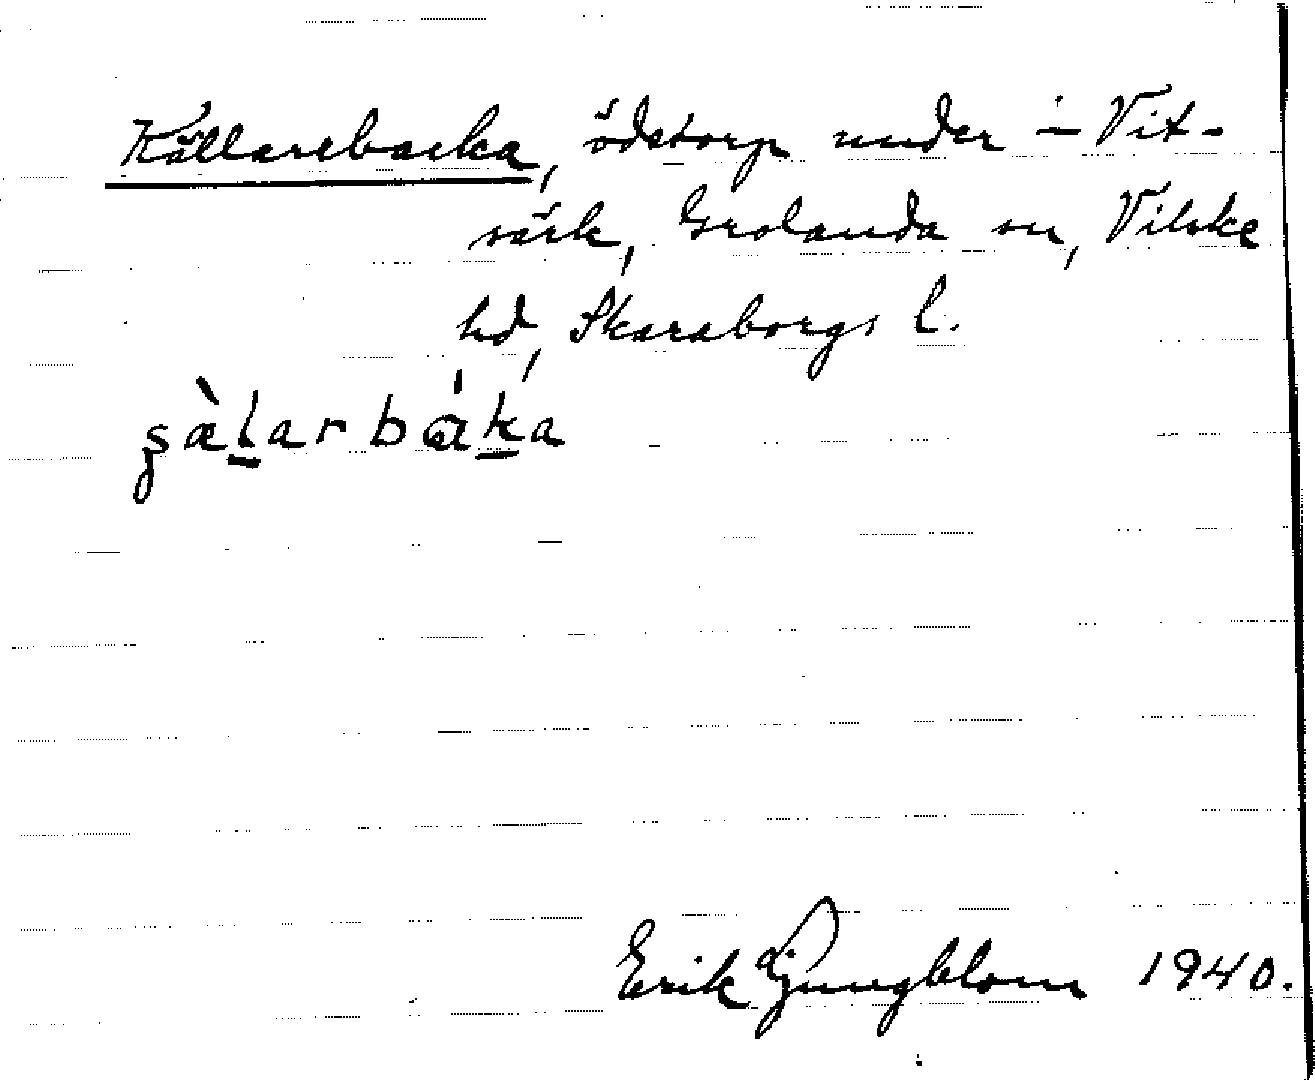 Källarebacka, ödetorp under i Vit-
säck, Grolanda sn, Vilske
hd, Skaraborgs l.
Erik Ljungblom 1940.